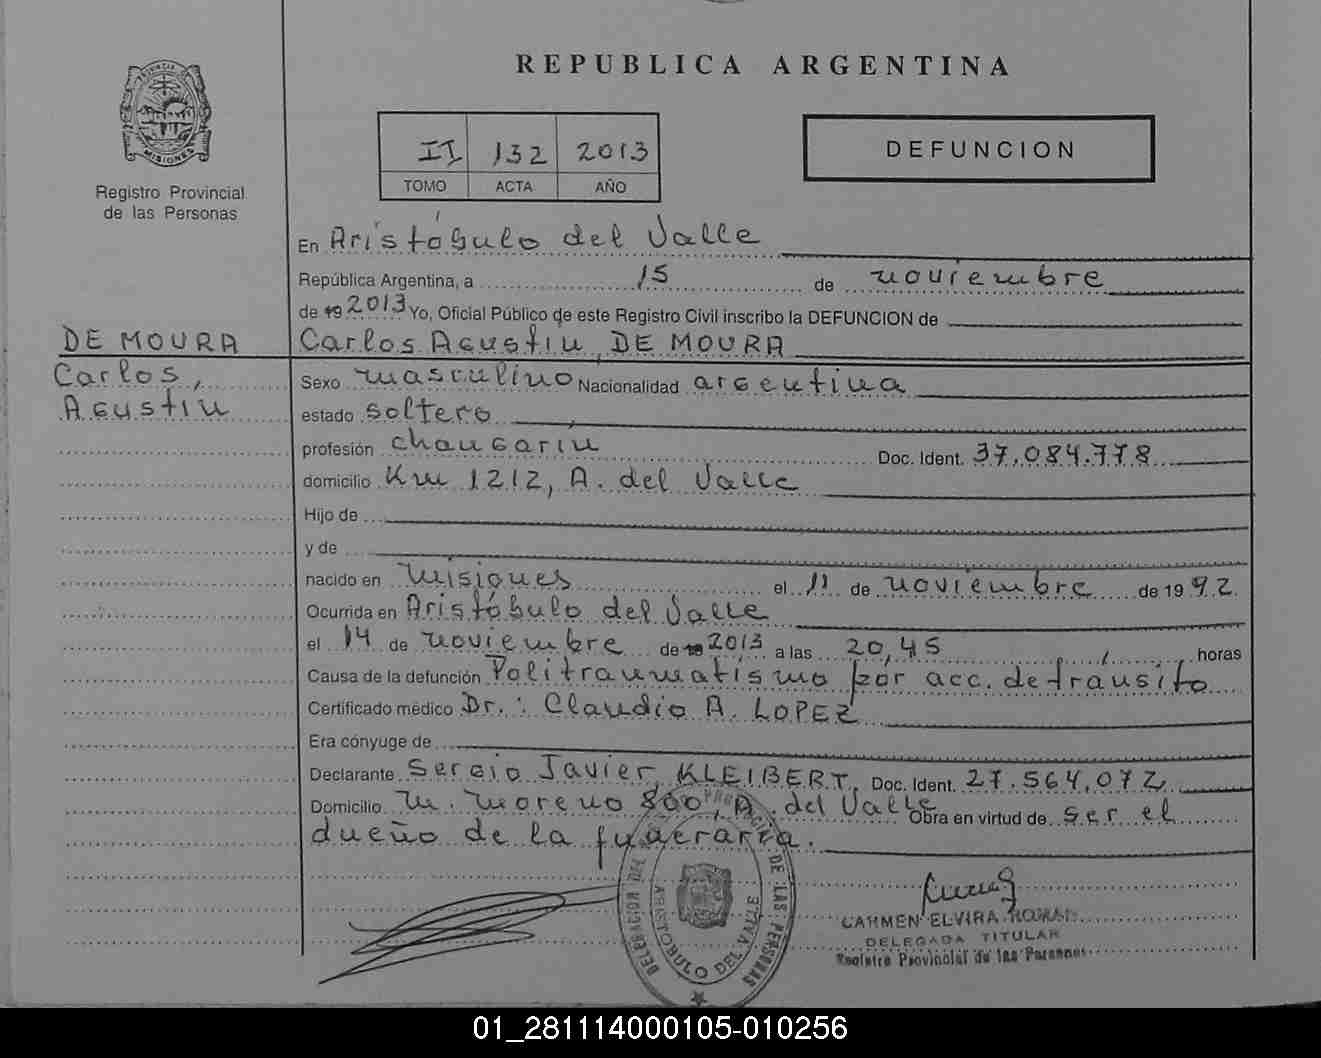 REPUBLICA ARGENTINA
PROVINCIA DE
MISIONES
Registro Provincial
de las Personas
II 132 2013
TOMO ACTA AÑO
DEFUNCION
En Aristóbulo del Valle
República Argentina, a 15 de noviembre
de 19 2013 Yo, Oficial Público de este Registro Civil inscribo la DEFUNCION de
DE MOURA Carlos Agustin, DE MOURA
Carlos, Sexo masculino Nacionalidad argentina
Agustin estado soltero
profesión changarin Doc. Ident. 37.084.778
domicilio Km 1212, A. del Valle
Hijo de
y de
nacido en Misiones el 11 de noviembre de 19 92.
Ocurrida en Aristóbulo del Valle
el 14 de noviembre de 19 2013 a las 20,45 horas
Causa de la defunción Politraumatismo por acc. de tránsito
Certificado médico Dr.: Claudio A. LOPEZ
Era cónyuge de
Declarante Sergio Javier, KLEIBERT, Doc. Ident. 27.564.072
Domicilio M. Moreno 800, A. del Valle Obra en virtud de ser el
dueño de la funeraria.
DELEGACION DEL REGISTRO PROVINCIAL DE LAS PERSONAS
ARISTOBULO DEL VALLE
CARMEN ELVIRA ROMAN
DELEGADA TITULAR
Registro Provincial de las Personas
01_281114000105-010256